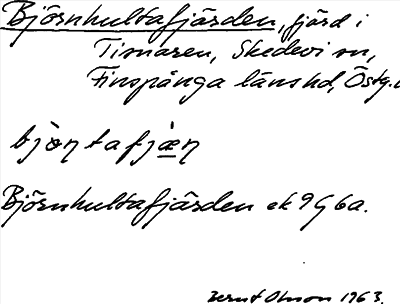 Björnhultafjärden, fjärd i
Tisnaren, Skedevi sn,
Finspånga länshd, Östg.
bjòŋtafjæ̀ŋ
Björnhultafjärden ek 9G 6a.
Bernt Olsson 1963.